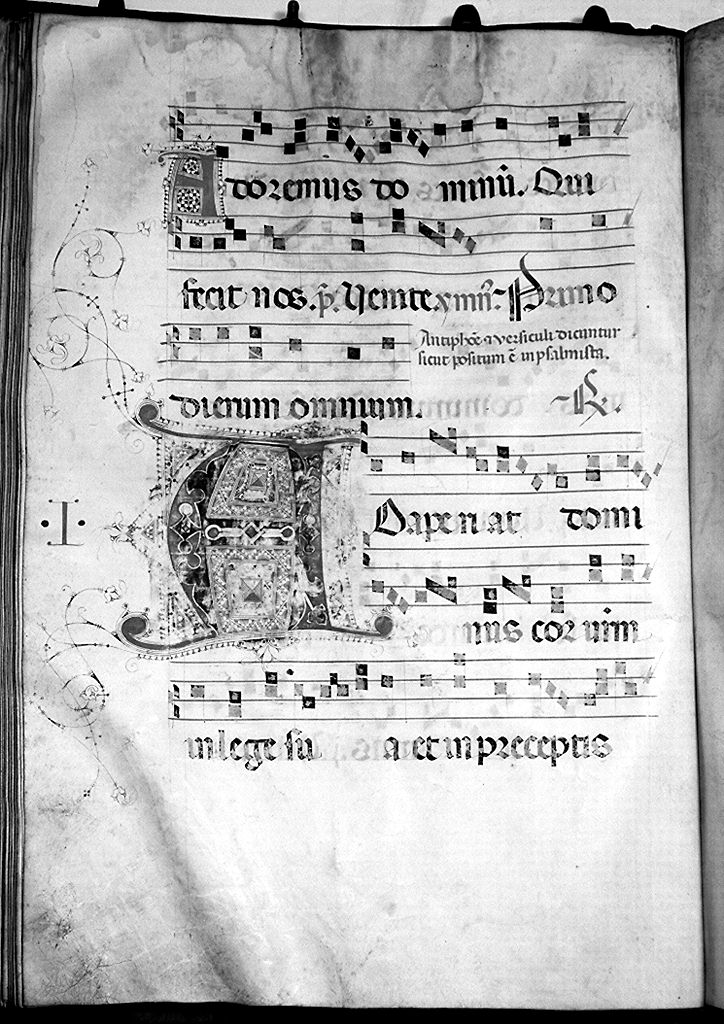 Adoremus do minū. Qui
fecit nos. p̄. Venite. xciiii. Primo
Antiphōe ⁊ versiculi dicuntur
sicut positum ē in psalmista.
dierum omnium. R.
· I ·
Adaperi at domi
nus cor vrm
in lege su a et in preceptis